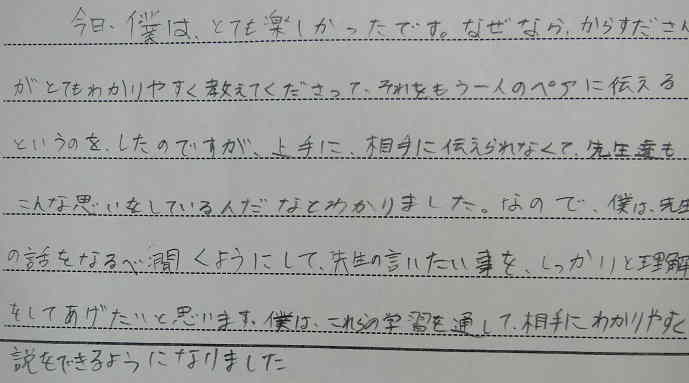 今日、僕は、とても楽しかったです。なぜなら、からすださん
がとてもわかりやすく教えてくださって、それをもう一人のペアに伝える
というのを、したのですが、上手に、相手に伝えられなくて、先生達も
こんな思いをしているんだなとわかりました。なので、僕は、先生
の話をなるべく聞くようにして、先生の言いたい事を、しっかりと理解
をしてあげたいと思います。僕は、これらの学習を通して、相手にわかりやすく
説をできるようになりました